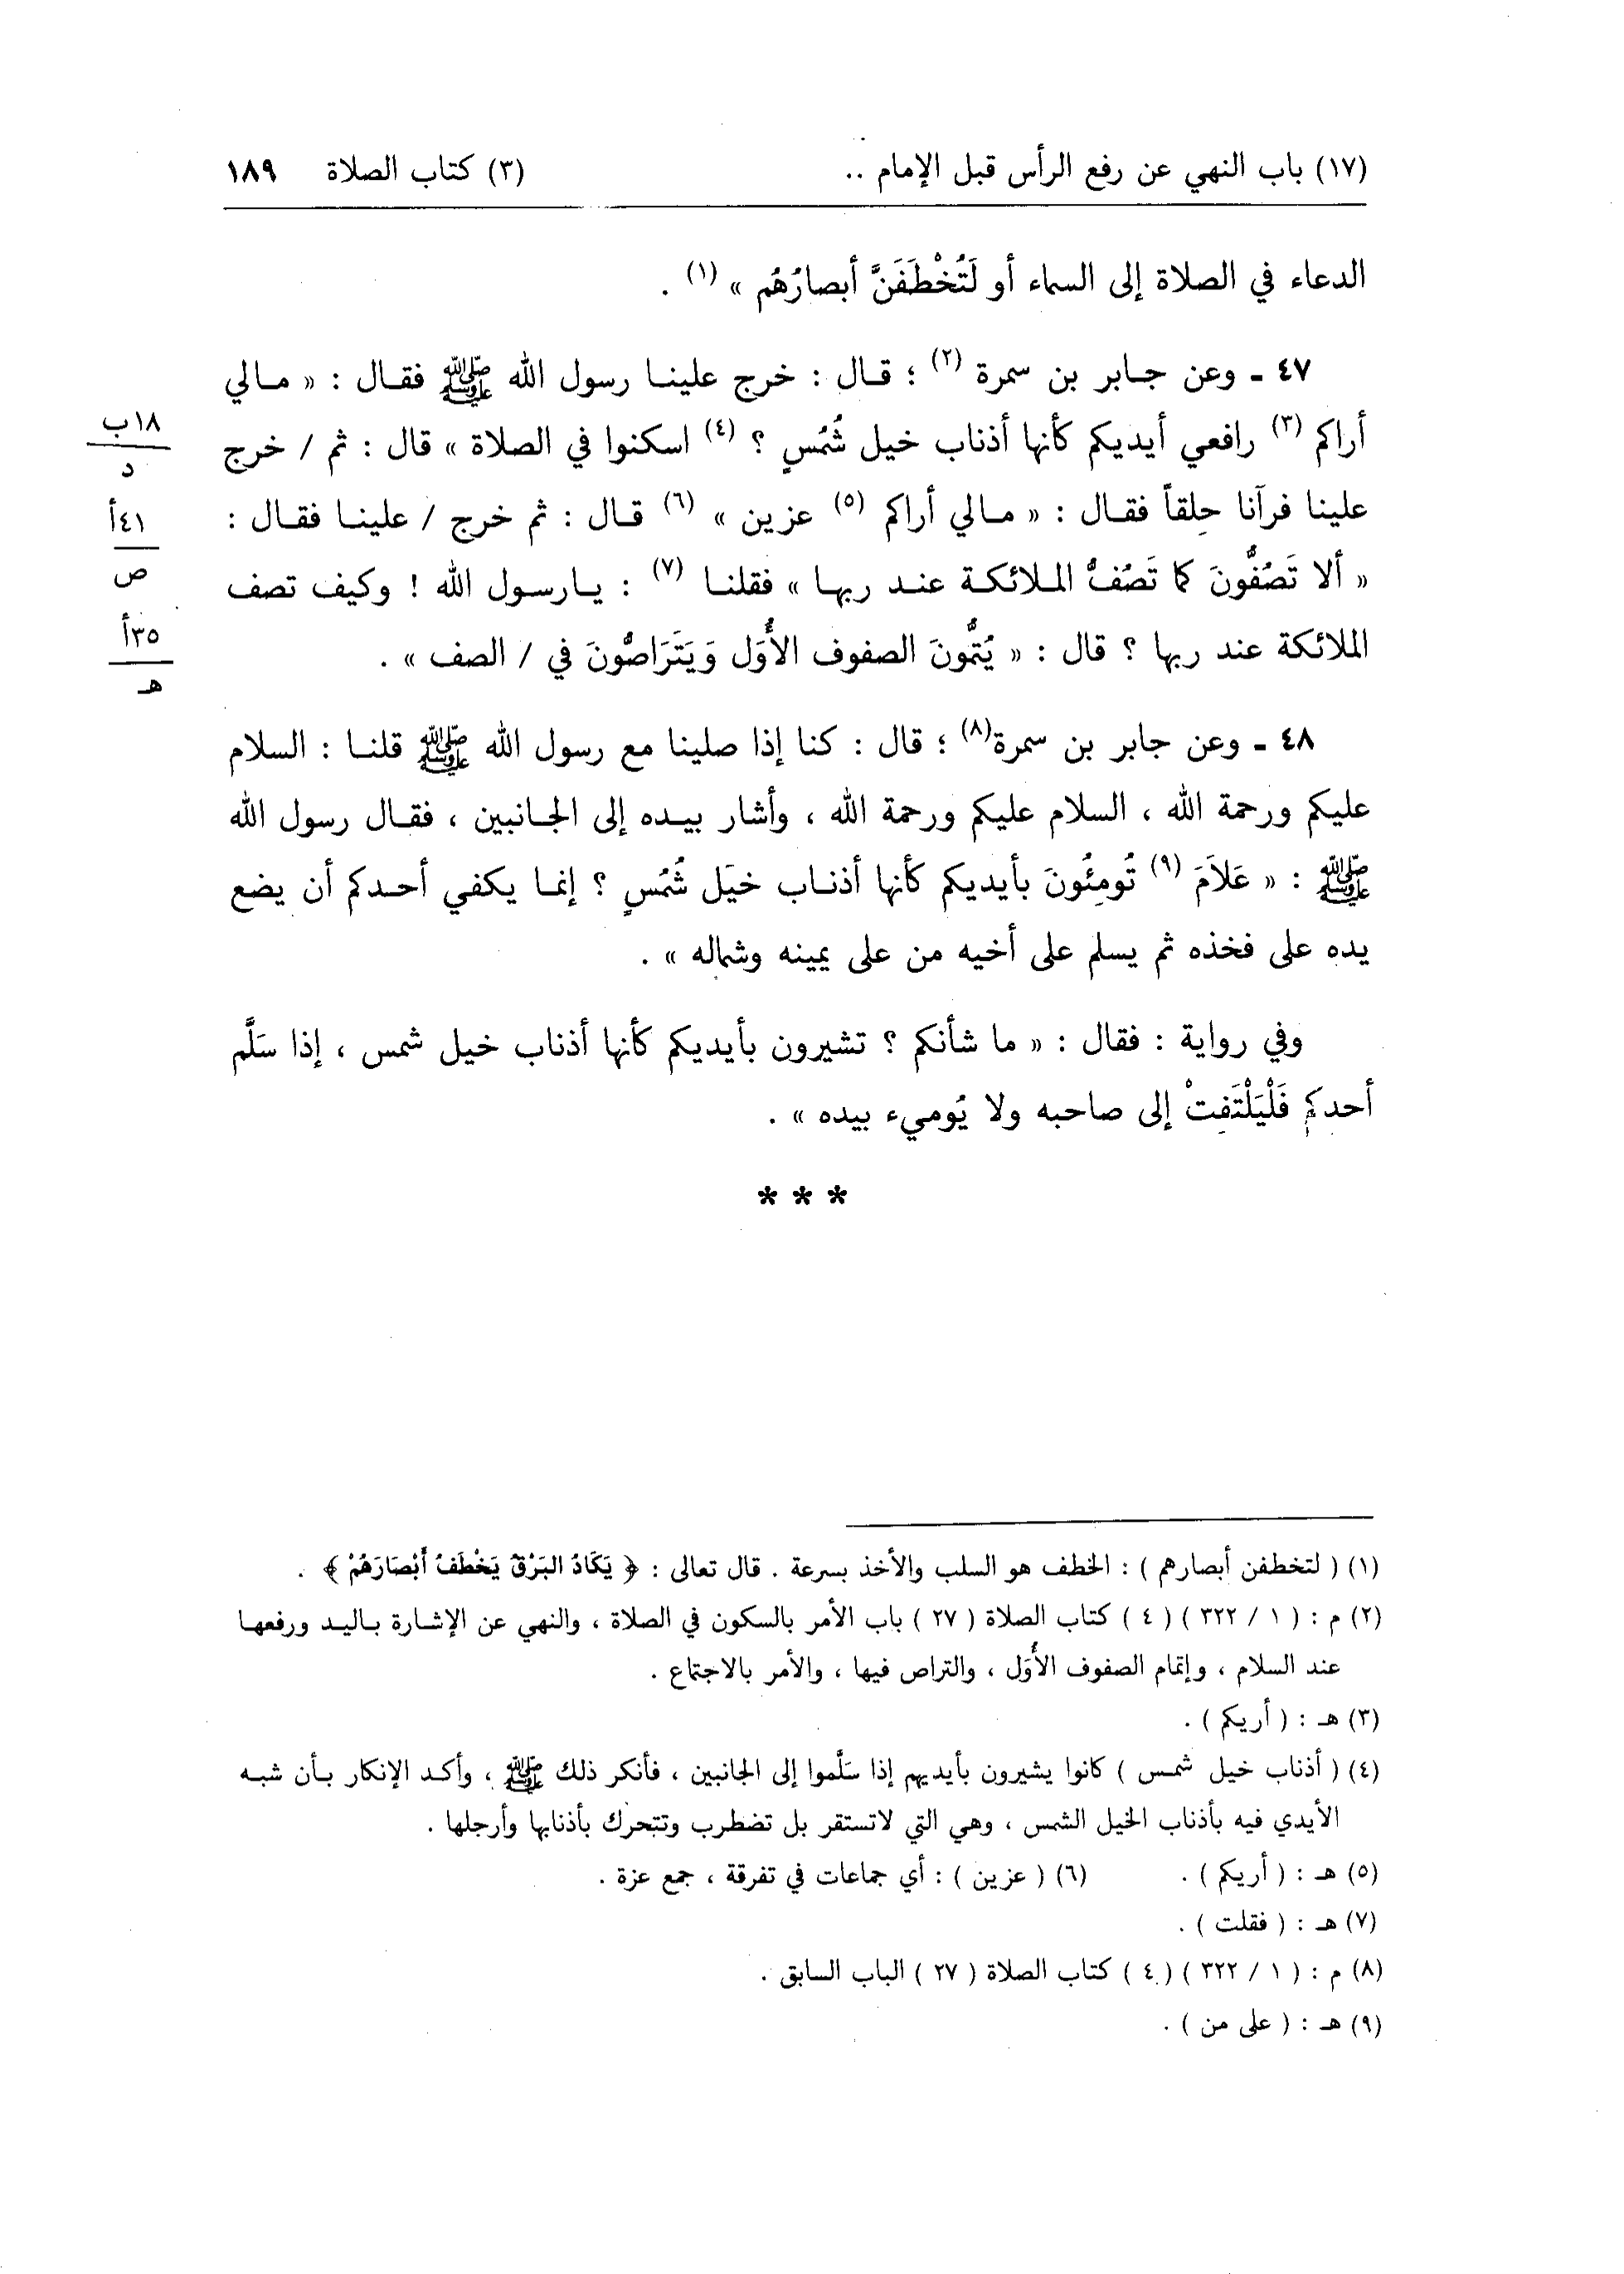 (١٧) باب النهي عن رفع الرأس قبل الإمام .. (٣) كتاب الصلاة ١٨٩
الدعاء في الصلاة إلى السماء أو لَتُخْطَفَنَّ أبصارُهُم » (١) .
٤٧ - وعن جابر بن سمرة (٢) ؛ قال : خرج علينا رسول الله ﷺ فقال : « مالي
أراكم (٣) رافعي أيديكم كأنها أذناب خيل شُمُسٍ ؟ (٤) اسكنوا في الصلاة » قال : ثم / خرج
١٨ب
د
علينا فرآنا حِلقاً فقال : « مالي أراكم (٥) عزين » (٦) قال : ثم خرج / علينا فقال :
٤١أ
ص
« ألا تَصُفُّونَ كما تَصُفُّ الملائكة عند ربها » فقلنا (٧) : يارسول الله ! وكيف تصف
الملائكة عند ربها ؟ قال : « يُتمُّونَ الصفوف الأُوَل وَيَتَرَاصُّونَ في / الصف » .
٣٥أ
هـ
٤٨ - وعن جابر بن سمرة(٨) ؛ قال : كنا إذا صلينا مع رسول الله ﷺ قلنا : السلام
عليكم ورحمة الله ، السلام عليكم ورحمة الله ، وأشار بيده إلى الجانبين ، فقال رسول الله
ﷺ : « عَلاَمَ (٩) تُومِئُونَ بأيديكم كأنها أذناب خَيل شُمُسٍ ؟ إنما يكفي أحدكم أن يضع
يده على فخذه ثم يسلم على أخيه من على يمينه وشماله » .
وفي رواية : فقال : « ما شأنكم ؟ تشيرون بأيديكم كأنها أذناب خيل شمس ، إذا سَلَّم
أحدكم فَلْيَلْتَفِتْ إلى صاحبه ولا يُوميء بيده » .
* * *
(١) ( لتخطفن أبصارهم ) : الخطف هو السلب والأخذ بسرعة . قال تعالى : ﴿ يَكَادُ البَرْقُ يَخْطَفُ أَبْصَارَهُمْ ﴾ .
(٢) م : ( ١ / ٣٢٢ ) ( ٤ ) كتاب الصلاة ( ٢٧ ) باب الأمر بالسكون في الصلاة ، والنهي عن الإشارة باليد ورفعها
عند السلام ، وإتمام الصفوف الأُوَل ، والتراص فيها ، والأمر بالاجتماع .
(٣) هـ : ( أريكم ) .
(٤) ( أذناب خيل شمس ) كانوا يشيرون بأيديهم إذا سَلَّموا إلى الجانبين ، فأنكر ذلك ﷺ ، وأكد الإنكار بأن شبه
الأيدي فيه بأذناب الخيل الشمس ، وهي التي لاتستقر بل تضطرب وتتحرك بأذنابها وأرجلها .
(٥) هـ : ( أريكم ) . (٦) ( عزين ) : أي جماعات في تفرقة ، جمع عزة .
(٧) هـ : ( فقلت ) .
(٨) م : ( ١ / ٣٢٢ ) ( ٤ ) كتاب الصلاة ( ٢٧ ) الباب السابق .
(٩) هـ : ( على من ) .